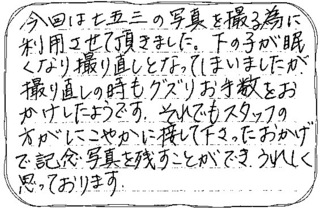 今回は七五三の写真を撮る為に
利用させて頂きました。下の子が眠
くなり撮り直しとなってしまいましたが
撮り直しの時もグズりお手数をお
かけしたようです。それでもスタッフの
方がにこやかに接して下さったおかげ
で記念写真を残すことができ、うれしく
思っております。